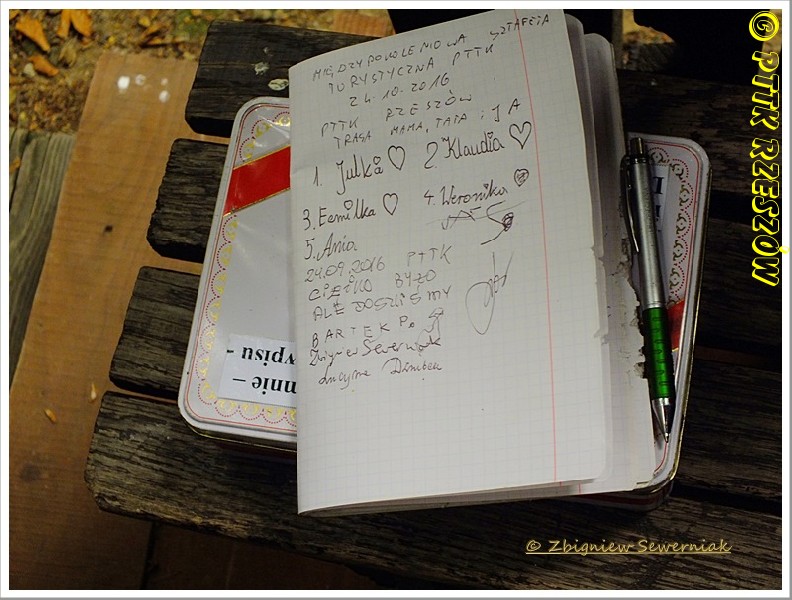 MIĘDZYPOKOLENIOWA SZTAFETA
TURYSTYCZNA PTTK
24.10.2016
PTTK RZESZÓW
TRASA MAMA, TATA i JA
1. Julka ♡ 2. Klaudia ♡
3. Eemilka ♡ 4. Weronika
5. Ania
24.09.2016 PTTK
CIĘŻKO BYŁO
ALE DOSZLIŚMY
BARTEK P.
Zbigniew Sewerniak
mnie –
wpisu –
© PTTK RZESZÓW
© Zbigniew Sewerniak